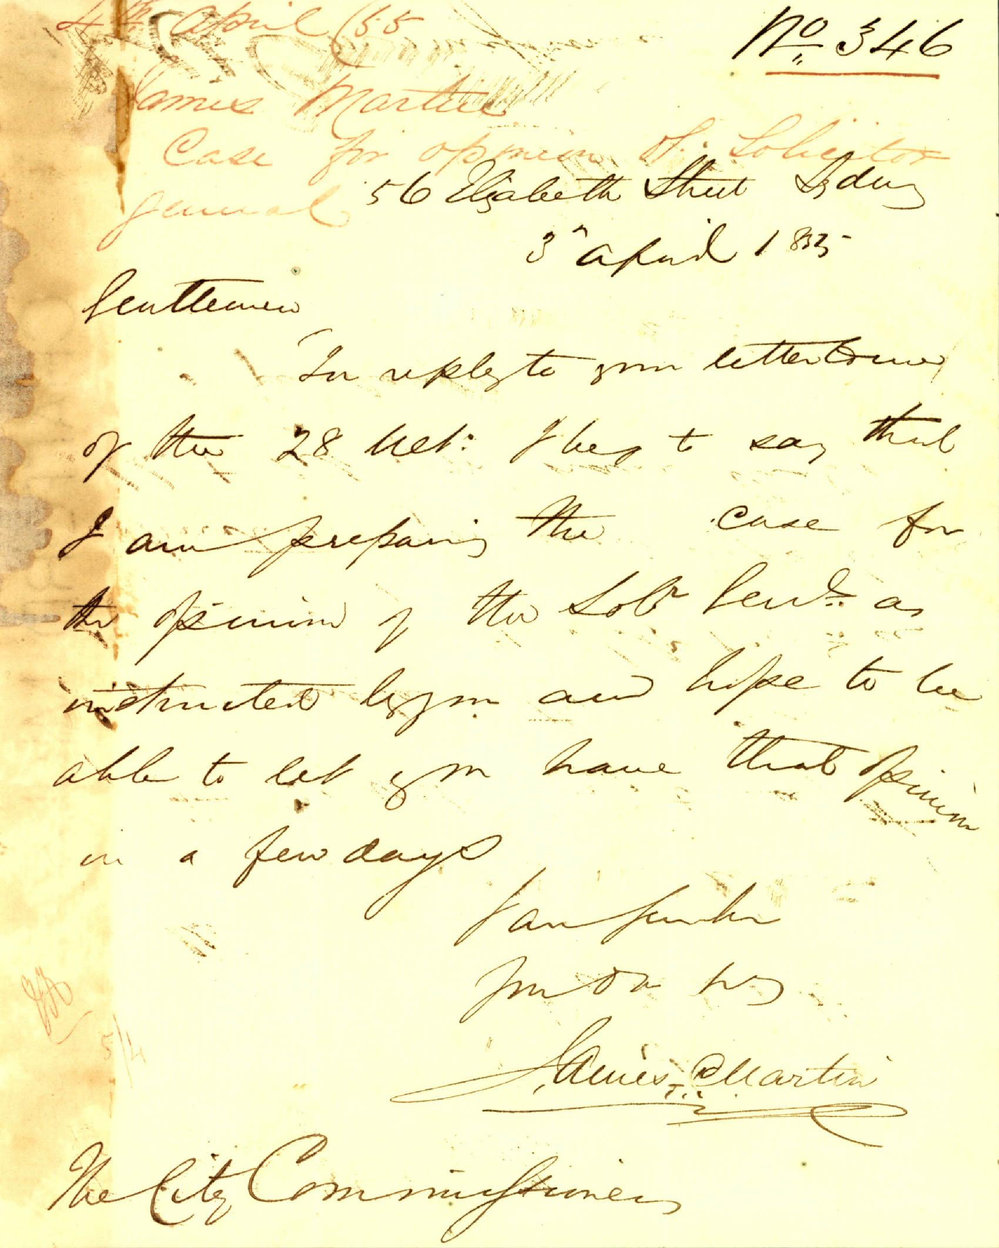 4th April /55
No. 346
James Martin
Case for opinion of Solicitor
General
56 Elizabeth Street Sydney
3rd April 1855
Gentlemen
In reply to your letter
of the 28 Ult: I beg to say that
I am preparing the case for
the opinion of the Solr Genl: as
instructed by you and hope to be
able to let you have that opinion
in a few days
I am Gentlen
Your Ob
James Martin
5/4
The City Commissioners